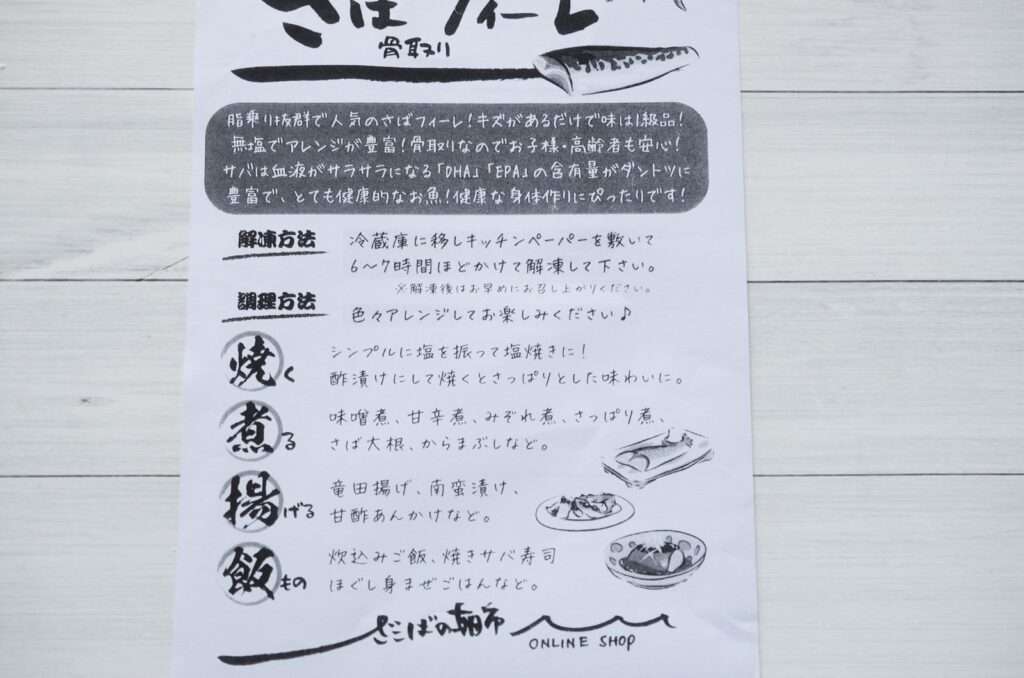 さばフィーレ
骨取り
脂乗り抜群で人気のさばフィーレ!キズがあるだけで味は1級品!
無塩でアレンジが豊富!骨取りなのでお子様・高齢者も安心!
サバは血液がサラサラになる「DHA」「EPA」の含有量がダントツに
豊富で、とても健康的なお魚!健康な身体作りにぴったりです!
解凍方法
冷蔵庫に移しキッチンペーパーを敷いて
6〜7時間ほどかけて解凍して下さい。
※解凍後はお早めにお召し上がりください。
調理方法
色々アレンジしてお楽しみください♪
焼く
シンプルに塩を振って塩焼きに!
酢漬けにして焼くとさっぱりとした味わいに。
煮る
味噌煮、甘辛煮、みぞれ煮、さっぱり煮、
さば大根、からまぶしなど。
揚げる
竜田揚げ、南蛮漬け、
甘酢あんかけなど。
飯もの
炊込みご飯、焼きサバ寿司
ほぐし身まぜごはんなど。
ざこばの朝市
ONLINE SHOP